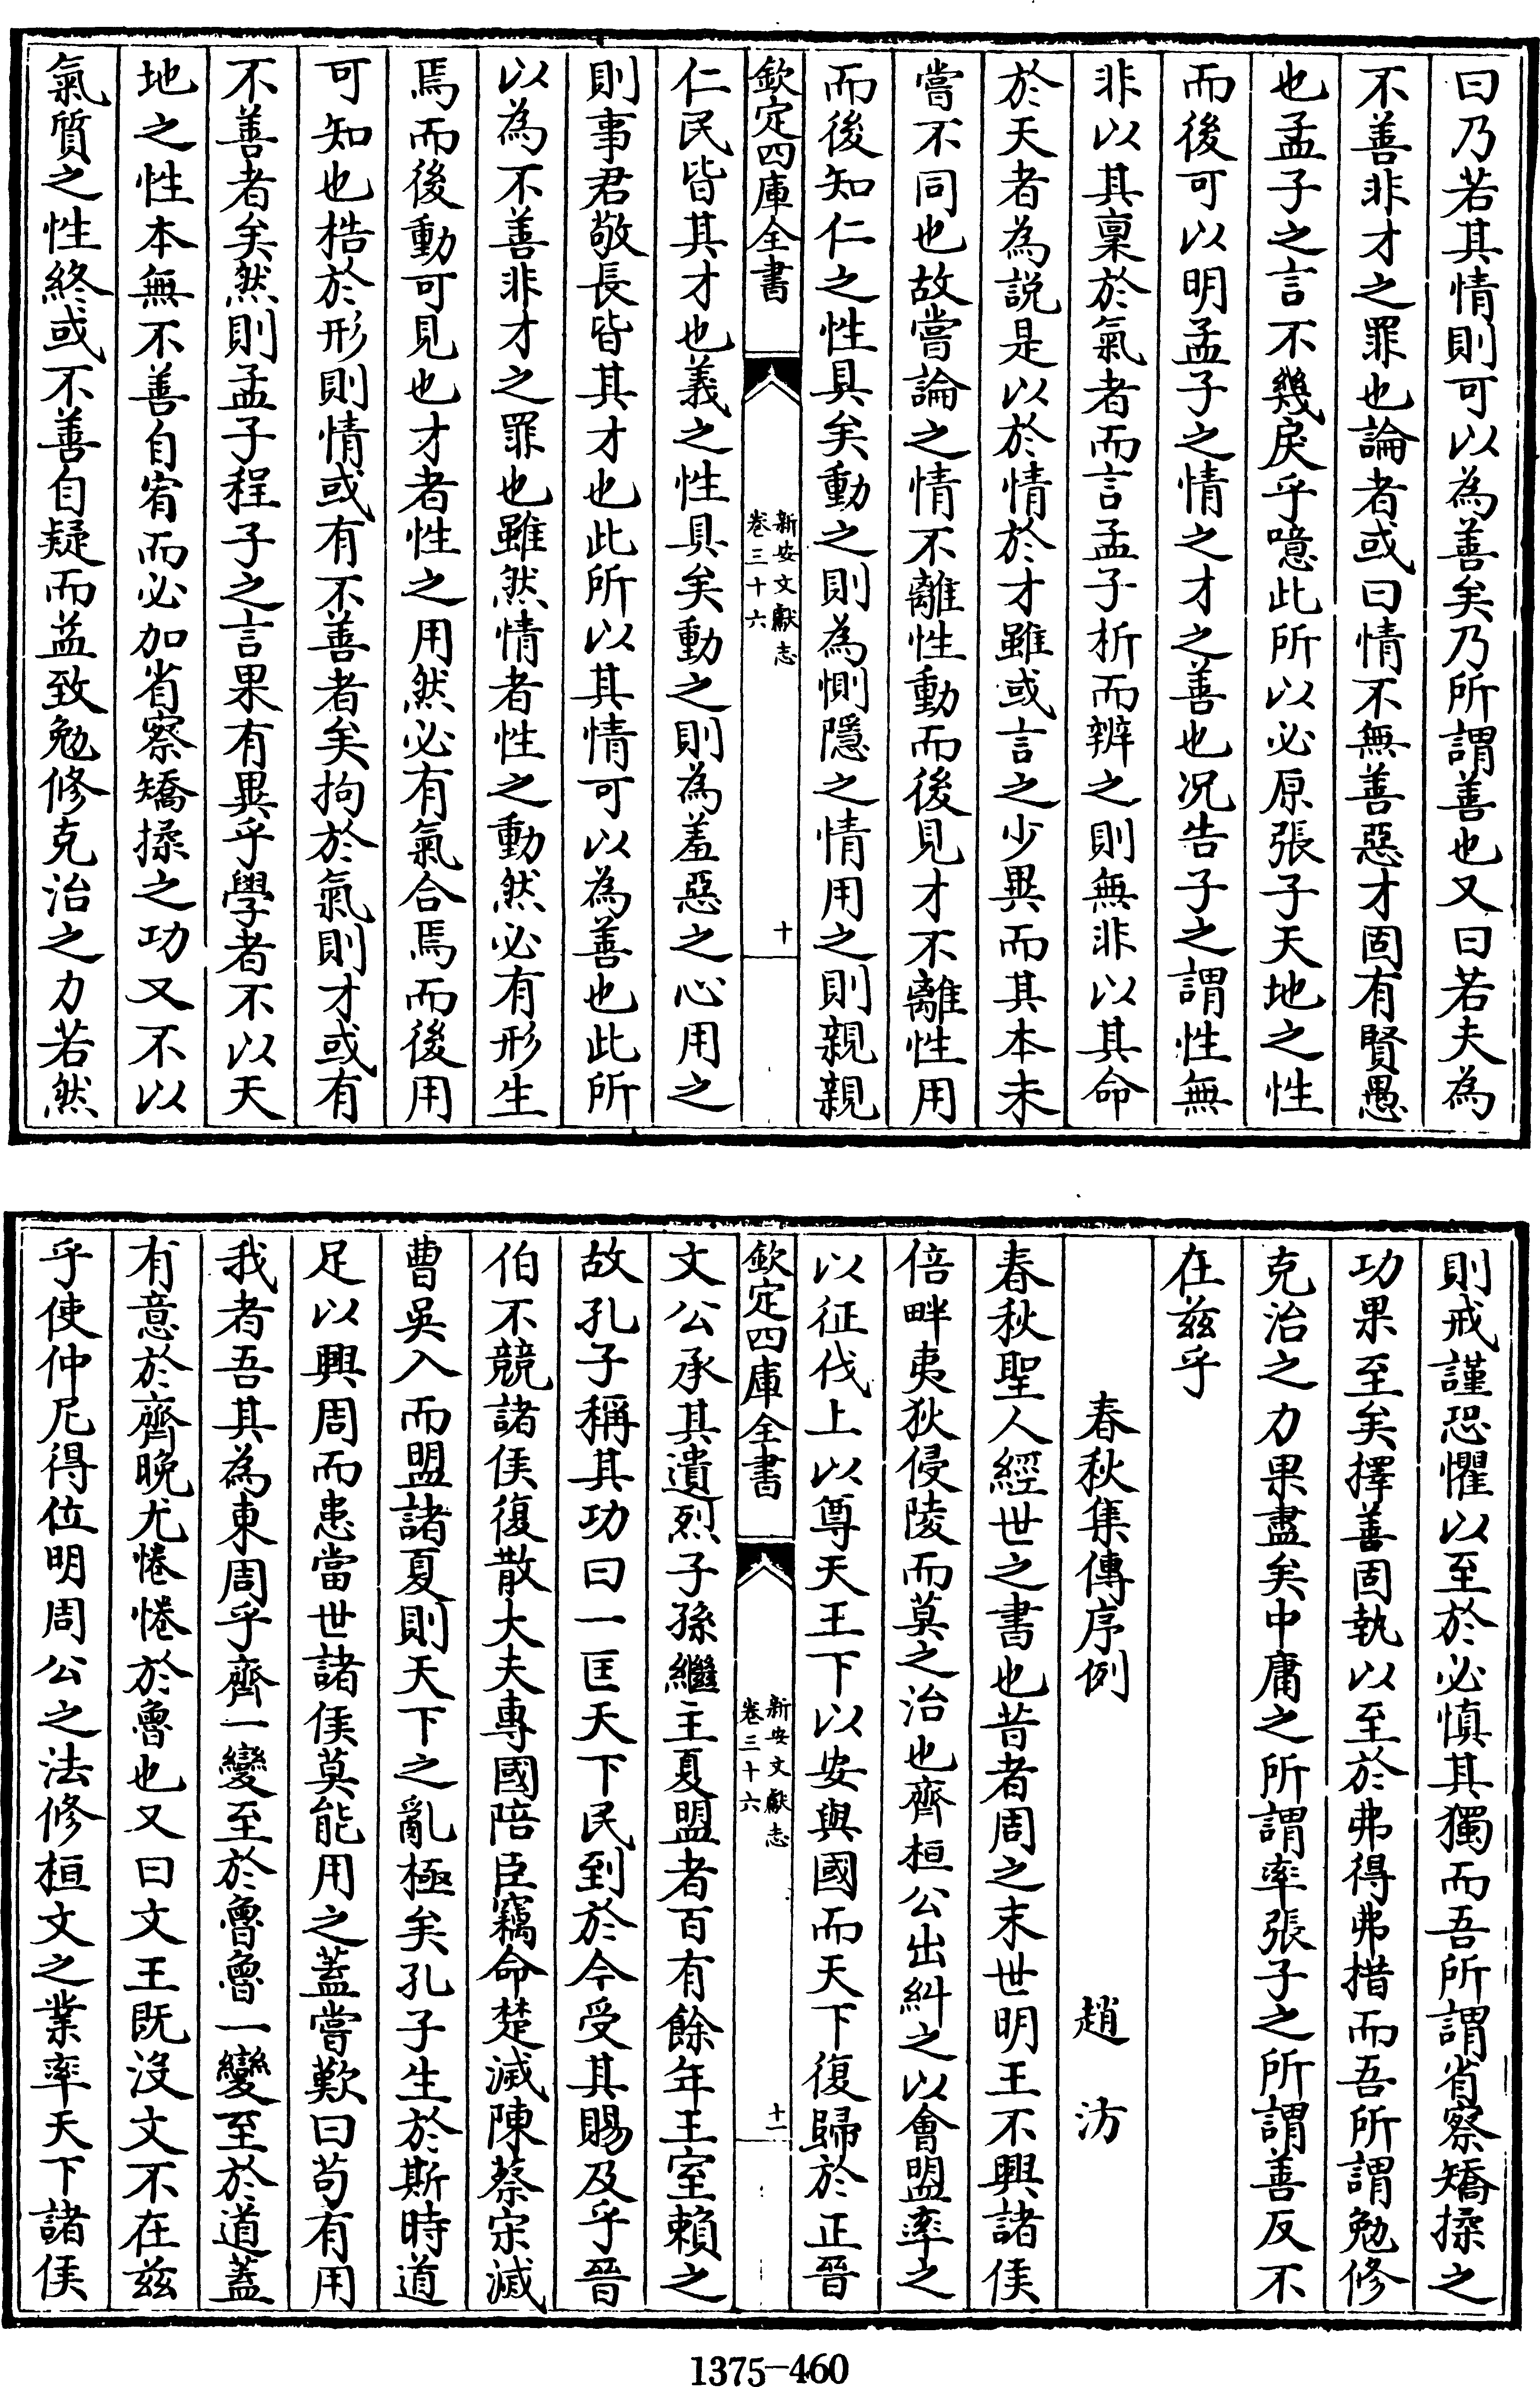 曰乃若其情則可以為善矣乃所謂善也又曰若夫為
不善非才之罪也論者或曰情不無善惡才固有賢愚
也孟子之言不幾戾乎噫此所以必原張子天地之性
而後可以明孟子之情之才之善也况告子之謂性無
非以其稟於氣者而言孟子析而辨之則無非以其命
於天者為説是以於情於才雖或言之少異而其本未
嘗不同也故嘗論之情不離性動而後見才不離性用
而後知仁之性具矣動之則為惻隱之情用之則親親
欽定四庫全書
新安文獻志
卷三十六
十
仁民皆其才也義之性具矣動之則為羞惡之心用之
則事君敬長皆其才也此所以其情可以為善也此所
以為不善非才之罪也雖然情者性之動然必有形生
焉而後動可見也才者性之用然必有氣合焉而後用
可知也梏於形則情或有不善者矣拘於氣則才或有
不善者矣然則孟子程子之言果有異乎學者不以天
地之性本無不善自宥而必加省察矯揉之功又不以
氣質之性終或不善自疑而益致勉修克治之力若然
則戒謹恐懼以至於必慎其獨而吾所謂省察矯揉之
功果至矣擇善固執以至於弗得弗措而吾所謂勉修
克治之力果盡矣中庸之所謂率張子之所謂善反不
在兹乎
春秋集傳序例 趙汸
春秋聖人經世之書也昔者周之末世明王不興諸侯
倍畔夷狄侵陵而莫之治也齊桓公出糾之以會盟率之
以征伐上以尊天王下以安與國而天下復歸於正晉
欽定四庫全書
新安文獻志
卷三十六
十一
文公承其遺烈子孫繼主夏盟者百有餘年王室賴之
故孔子稱其功曰一匡天下民到於今受其賜及乎晉
伯不競諸侯復散大夫專國陪臣竊命楚滅陳蔡宋滅
曹吳入而盟諸夏則天下之亂極矣孔子生於斯時道
足以興周而患當世諸侯莫能用之蓋嘗歎曰苟有用
我者吾其為東周乎齊一變至於魯魯一變至於道蓋
有意於齊晚尤惓惓於魯也又曰文王既沒文不在兹
乎使仲尼得位明周公之法修桓文之業率天下諸侯
1375-460